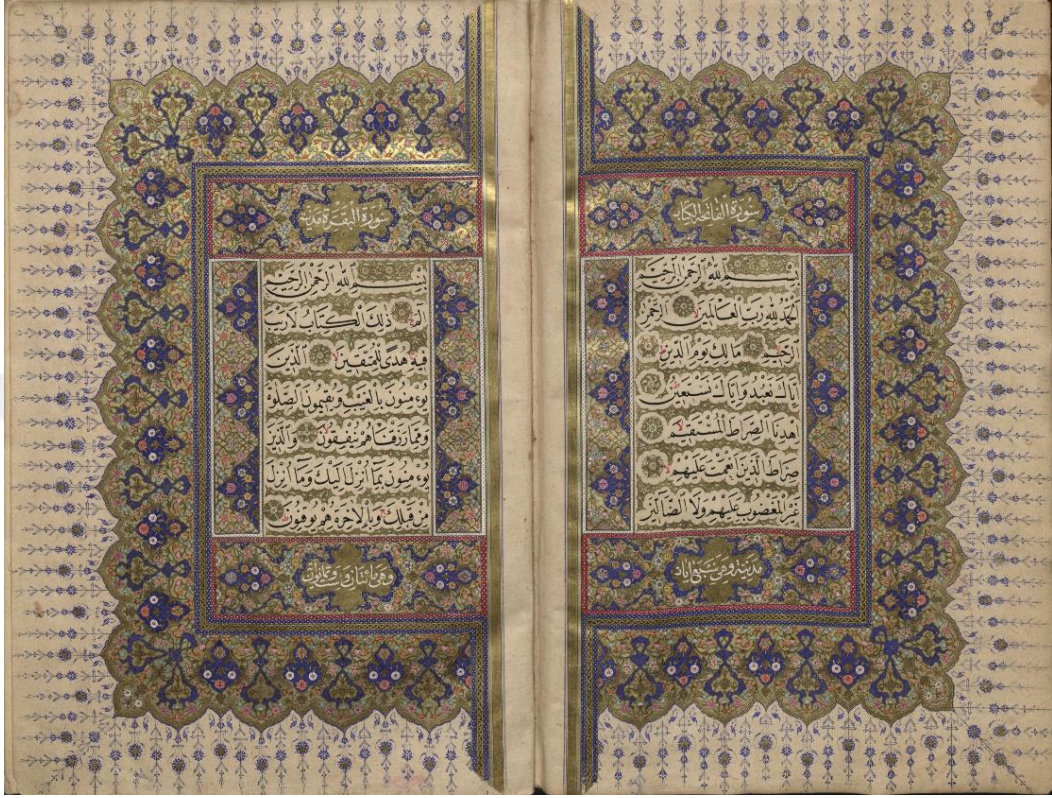 سورة الفاتحة الكتاب
بِسْمِ اللَّهِ الرَّحْمَنِ الرَّحِيمِ
اَلْحَمْدُ لِلَّهِ رَبِّ الْعَالَمِينَ الرَّحْمَنِ
الرَّحِيمِ مَالِكِ يَوْمِ الدِّينِ
إِيَّاكَ نَعْبُدُ وَإِيَّاكَ نَسْتَعِينُ
اِهْدِنَا الصِّرَاطَ الْمُسْتَقِيمَ
صِرَاطَ الَّذِينَ أَنْعَمْتَ عَلَيْهِمْ
غَيْرِ الْمَغْضُوبِ عَلَيْهِمْ وَلَا الضَّالِّينَ
مدنية وهي سبع آيات
سورة البقرة مدنية
بِسْمِ اللَّهِ الرَّحْمَنِ الرَّحِيمِ
الم ذَلِكَ الْكِتَابُ لَا رَيْبَ
فِيهِ هُدًى لِلْمُتَّقِينَ الَّذِينَ
يُؤْمِنُونَ بِالْغَيْبِ وَيُقِيمُونَ الصَّلٰوةَ
وَمِمَّا رَزَقْنَاهُمْ يُنْفِقُونَ وَالَّذِينَ
يُؤْمِنُونَ بِمَا أُنْزِلَ إِلَيْكَ وَمَا أُنْزِلَ
مِنْ قَبْلِكَ وَبِالْآخِرَةِ هُمْ يُوقِنُونَ
وهي مائتان وثمانون